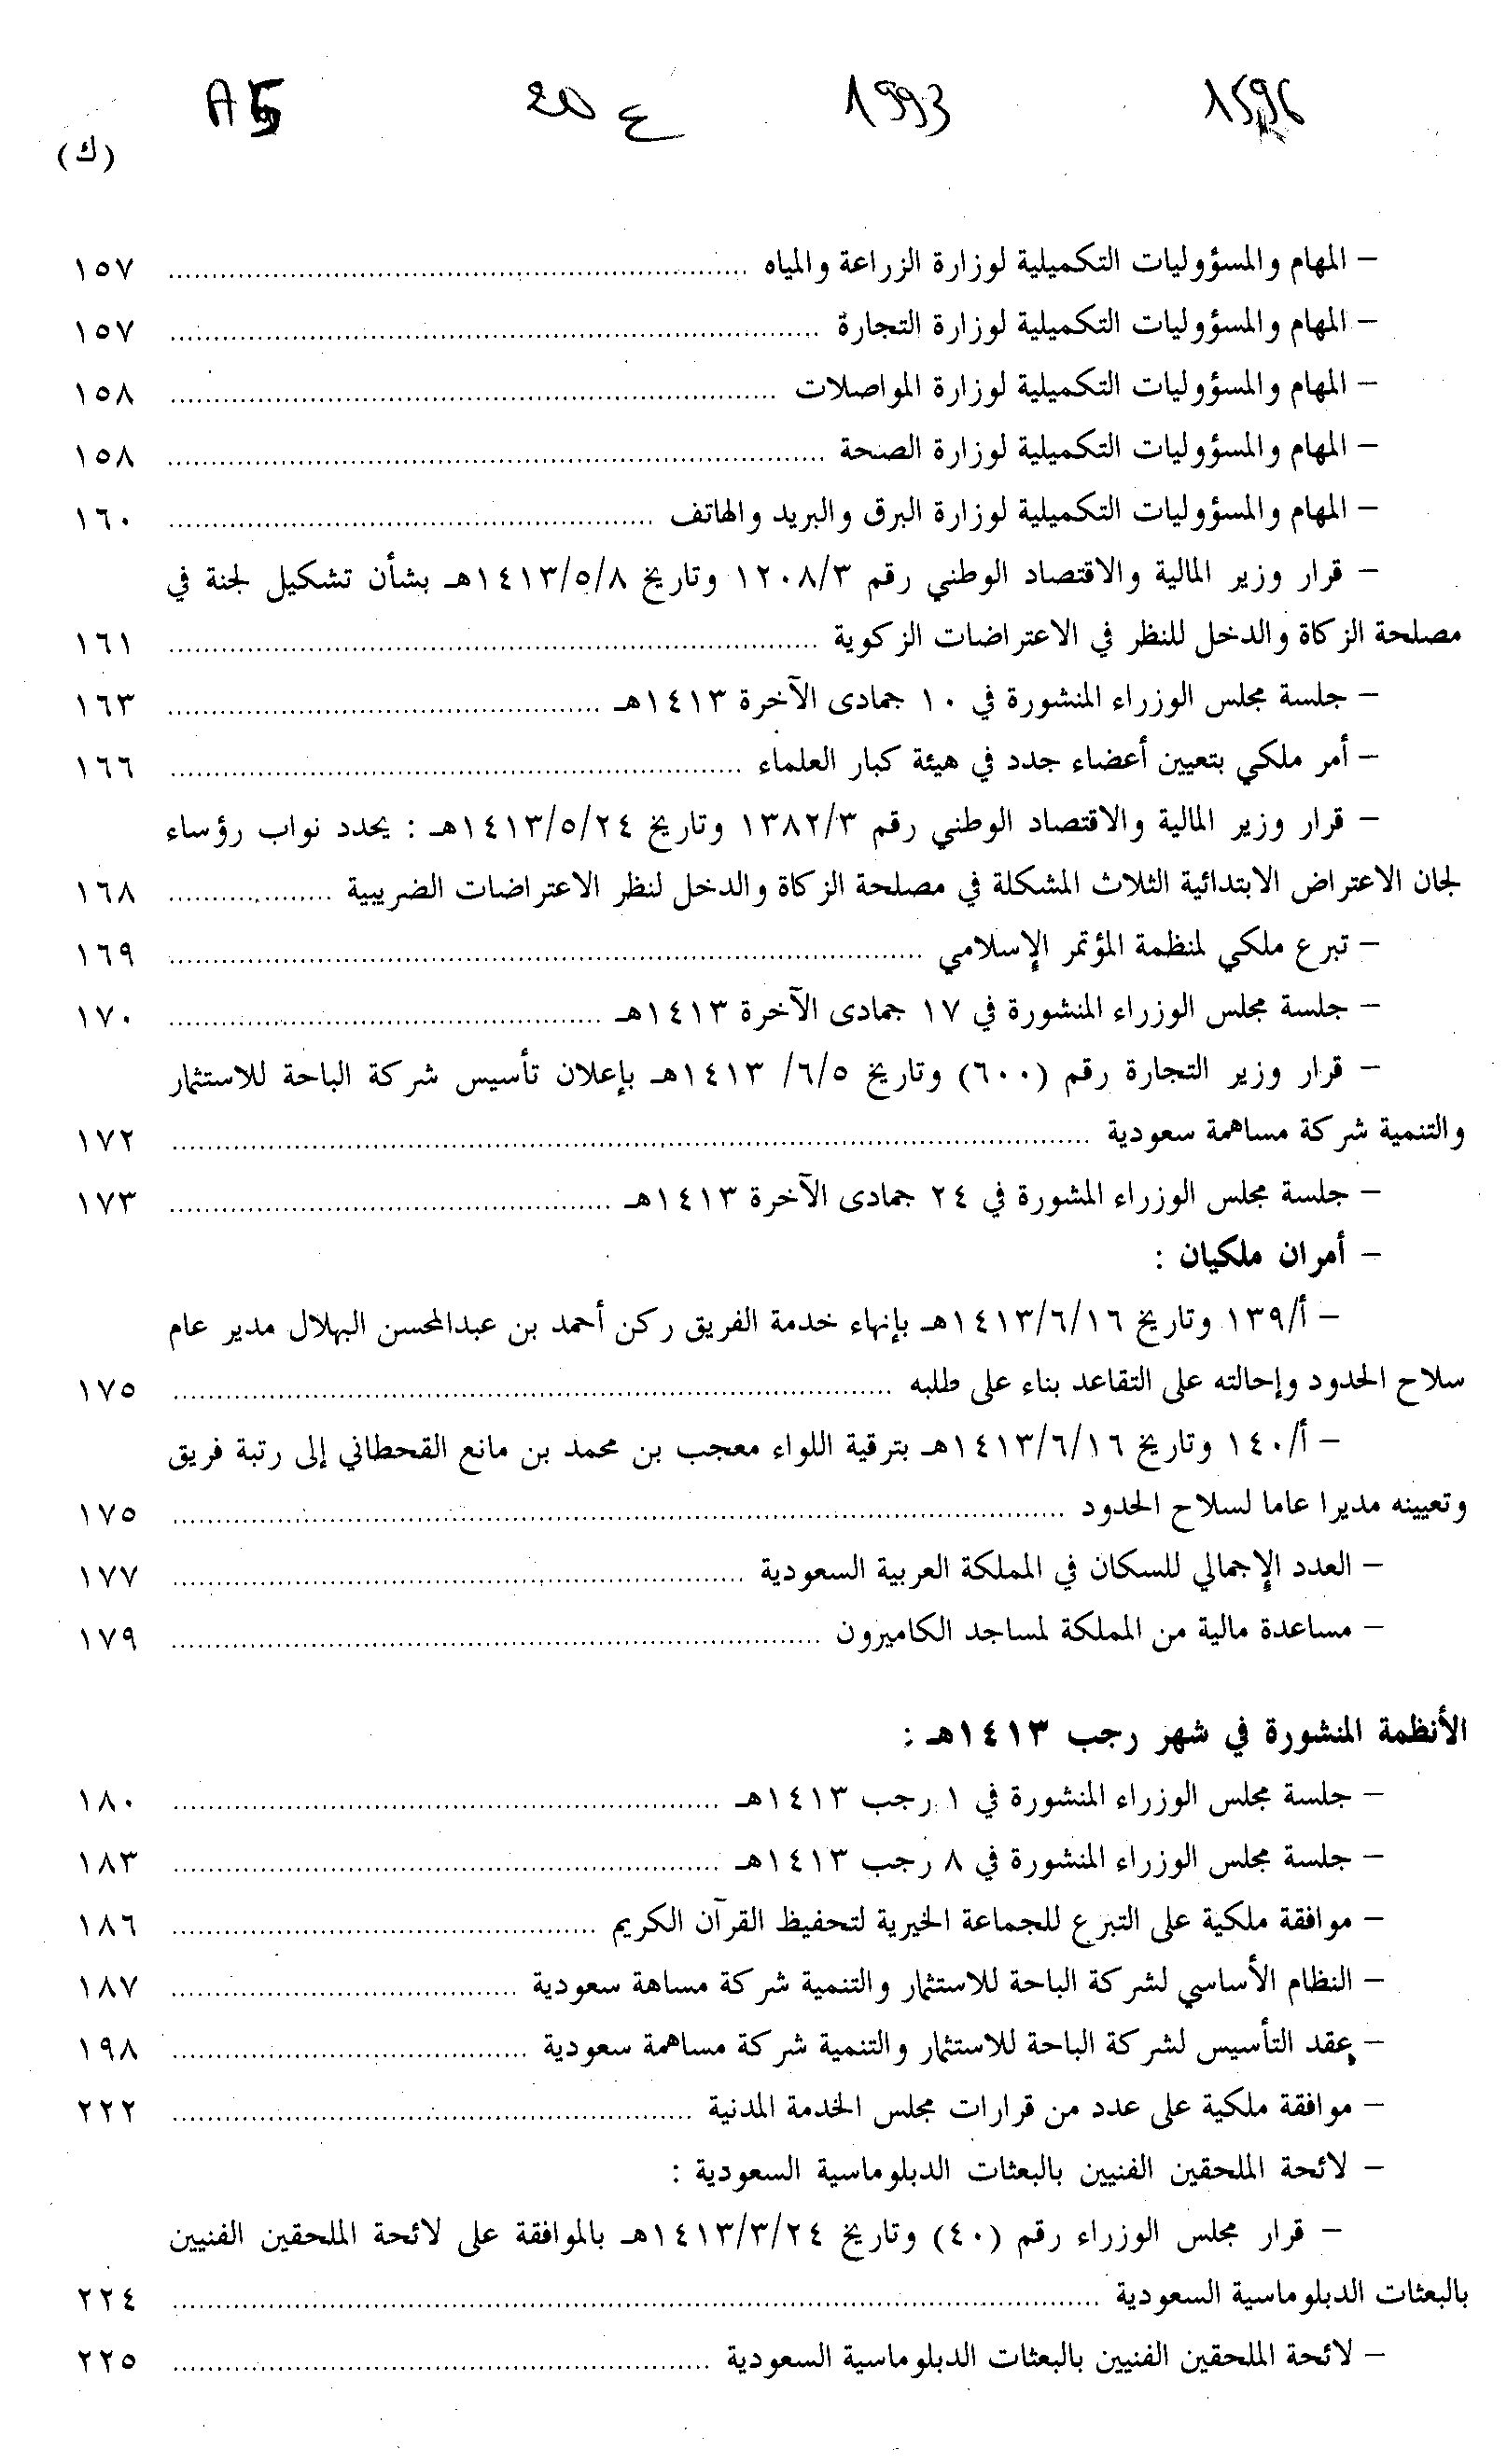 A5 20 ع 1993
(ك)
– المهام والمسؤوليات التكميلية لوزارة الزراعة والمياه ........ ١٥٧
– المهام والمسؤوليات التكميلية لوزارة التجارة ........ ١٥٧
– المهام والمسؤوليات التكميلية لوزارة المواصلات ........ ١٥٨
– المهام والمسؤوليات التكميلية لوزارة الصحة ........ ١٥٨
– المهام والمسؤوليات التكميلية لوزارة البرق والبريد والهاتف ........ ١٦٠
– قرار وزير المالية والاقتصاد الوطني رقم ١٢٠٨/٣ وتاريخ ١٤١٣/٥/٨هـ بشأن تشكيل لجنة في
مصلحة الزكاة والدخل للنظر في الاعتراضات الزكوية ........ ١٦١
– جلسة مجلس الوزراء المنشورة في ١٠ جمادى الآخرة ١٤١٣هـ ........ ١٦٣
– أمر ملكي بتعيين أعضاء جدد في هيئة كبار العلماء ........ ١٦٦
– قرار وزير المالية والاقتصاد الوطني رقم ١٣٨٢/٣ وتاريخ ١٤١٣/٥/٢٤هـ : يحدد نواب رؤساء
لجان الاعتراض الابتدائية الثلاث المشكلة في مصلحة الزكاة والدخل لنظر الاعتراضات الضريبية ........ ١٦٨
– تبرع ملكي لمنظمة المؤتمر الإسلامي ........ ١٦٩
– جلسة مجلس الوزراء المنشورة في ١٧ جمادى الآخرة ١٤١٣هـ ........ ١٧٠
– قرار وزير التجارة رقم (٦٠٠) وتاريخ ٦/٥/ ١٤١٣هـ بإعلان تأسيس شركة الباحة للاستثمار
والتنمية شركة مساهمة سعودية ........ ١٧٢
– جلسة مجلس الوزراء المشورة في ٢٤ جمادى الآخرة ١٤١٣هـ ........ ١٧٣
– أمران ملكيان :
– أ/١٣٩ وتاريخ ١٤١٣/٦/١٦هـ بإنهاء خدمة الفريق ركن أحمد بن عبدالمحسن البهلال مدير عام
سلاح الحدود وإحالته على التقاعد بناء على طلبه ........ ١٧٥
– أ/١٤٠ وتاريخ ١٤١٣/٦/١٦هـ بترقية اللواء معجب بن محمد بن مانع القحطاني إلى رتبة فريق
وتعيينه مديرا عاما لسلاح الحدود ........ ١٧٥
– العدد الإجمالي للسكان في المملكة العربية السعودية ........ ١٧٧
– مساعدة مالية من المملكة لمساجد الكاميرون ........ ١٧٩
الأنظمة المنشورة في شهر رجب ١٤١٣هـ :
– جلسة مجلس الوزراء المنشورة في ١ رجب ١٤١٣هـ ........ ١٨٠
– جلسة مجلس الوزراء المنشورة في ٨ رجب ١٤١٣هـ ........ ١٨٣
– موافقة ملكية على التبرع للجماعة الخيرية لتحفيظ القرآن الكريم ........ ١٨٦
– النظام الأساسي لشركة الباحة للاستثمار والتنمية شركة مساهة سعودية ........ ١٨٧
– عقد التأسيس لشركة الباحة للاستثمار والتنمية شركة مساهمة سعودية ........ ١٩٨
– موافقة ملكية على عدد من قرارات مجلس الخدمة المدنية ........ ٢٢٢
– لائحة الملحقين الفنيين بالبعثات الدبلوماسية السعودية :
– قرار مجلس الوزراء رقم (٤٠) وتاريخ ١٤١٣/٣/٢٤هـ بالموافقة على لائحة الملحقين الفنيين
بالبعثات الدبلوماسية السعودية ........ ٢٢٤
– لائحة الملحقين الفنيين بالبعثات الدبلوماسية السعودية ........ ٢٢٥